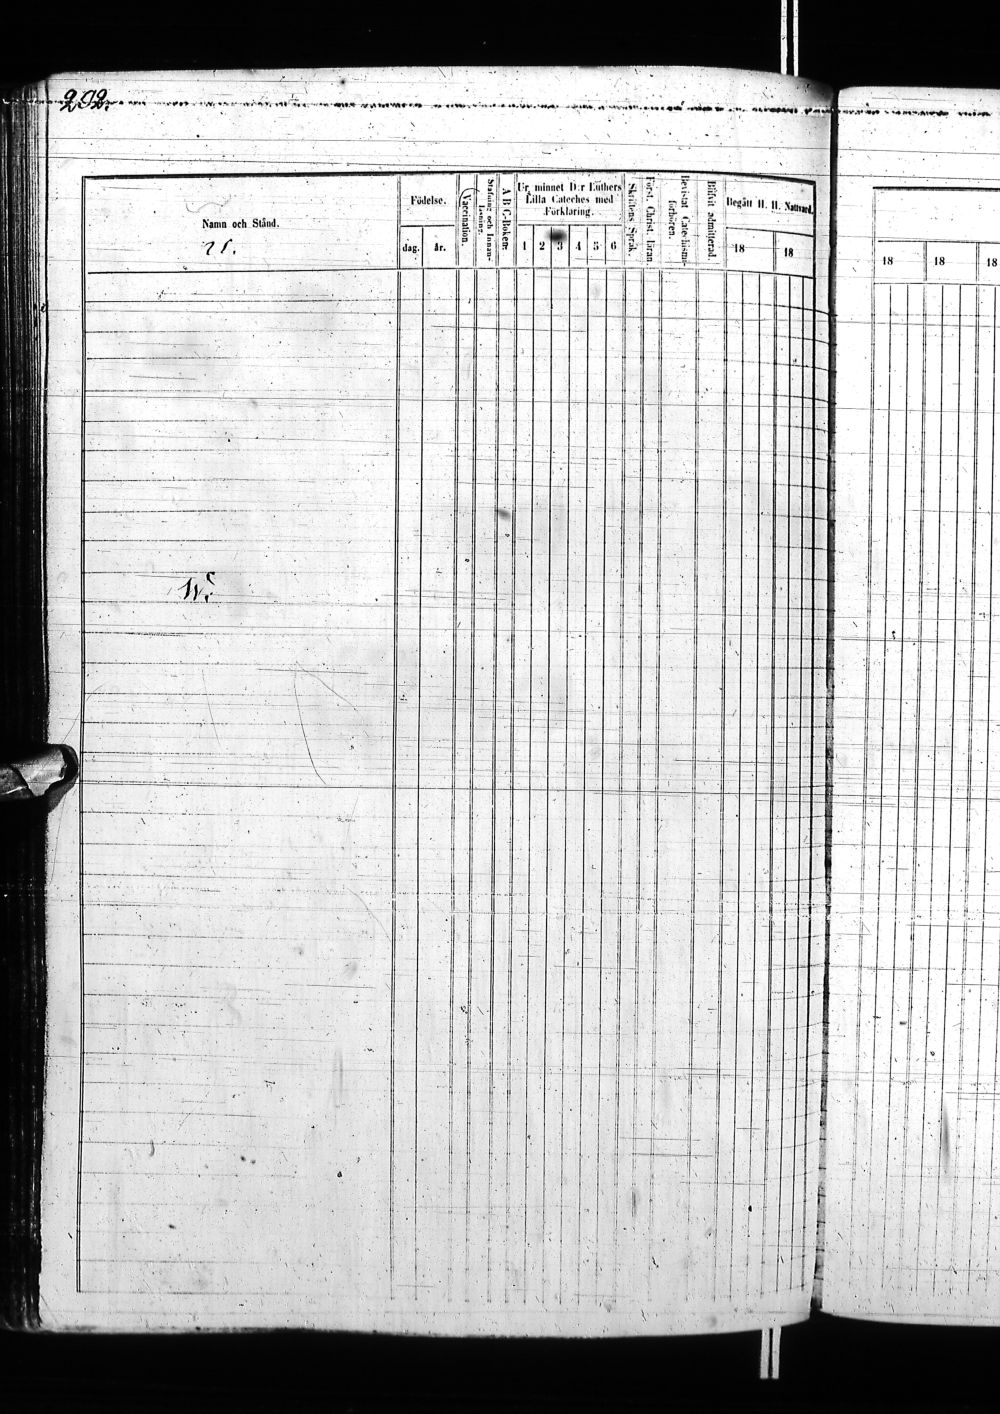 292.
Namn och Stånd.
Födelse.
dag.
år.
Vaccination.
Stafning och Innan-
läsning.
A B C-Boken.
Ur minnet D:r Luthers
Lilla Cateches med
Förklaring.
1 2 3 4 5 6
Skriftens Språk.
Först. Christ. läran.
Bevistat Catechismi-
förhören.
Blifvit admitterad.
Begått H. H. Nattvard.
18 18
W.
18 18 18